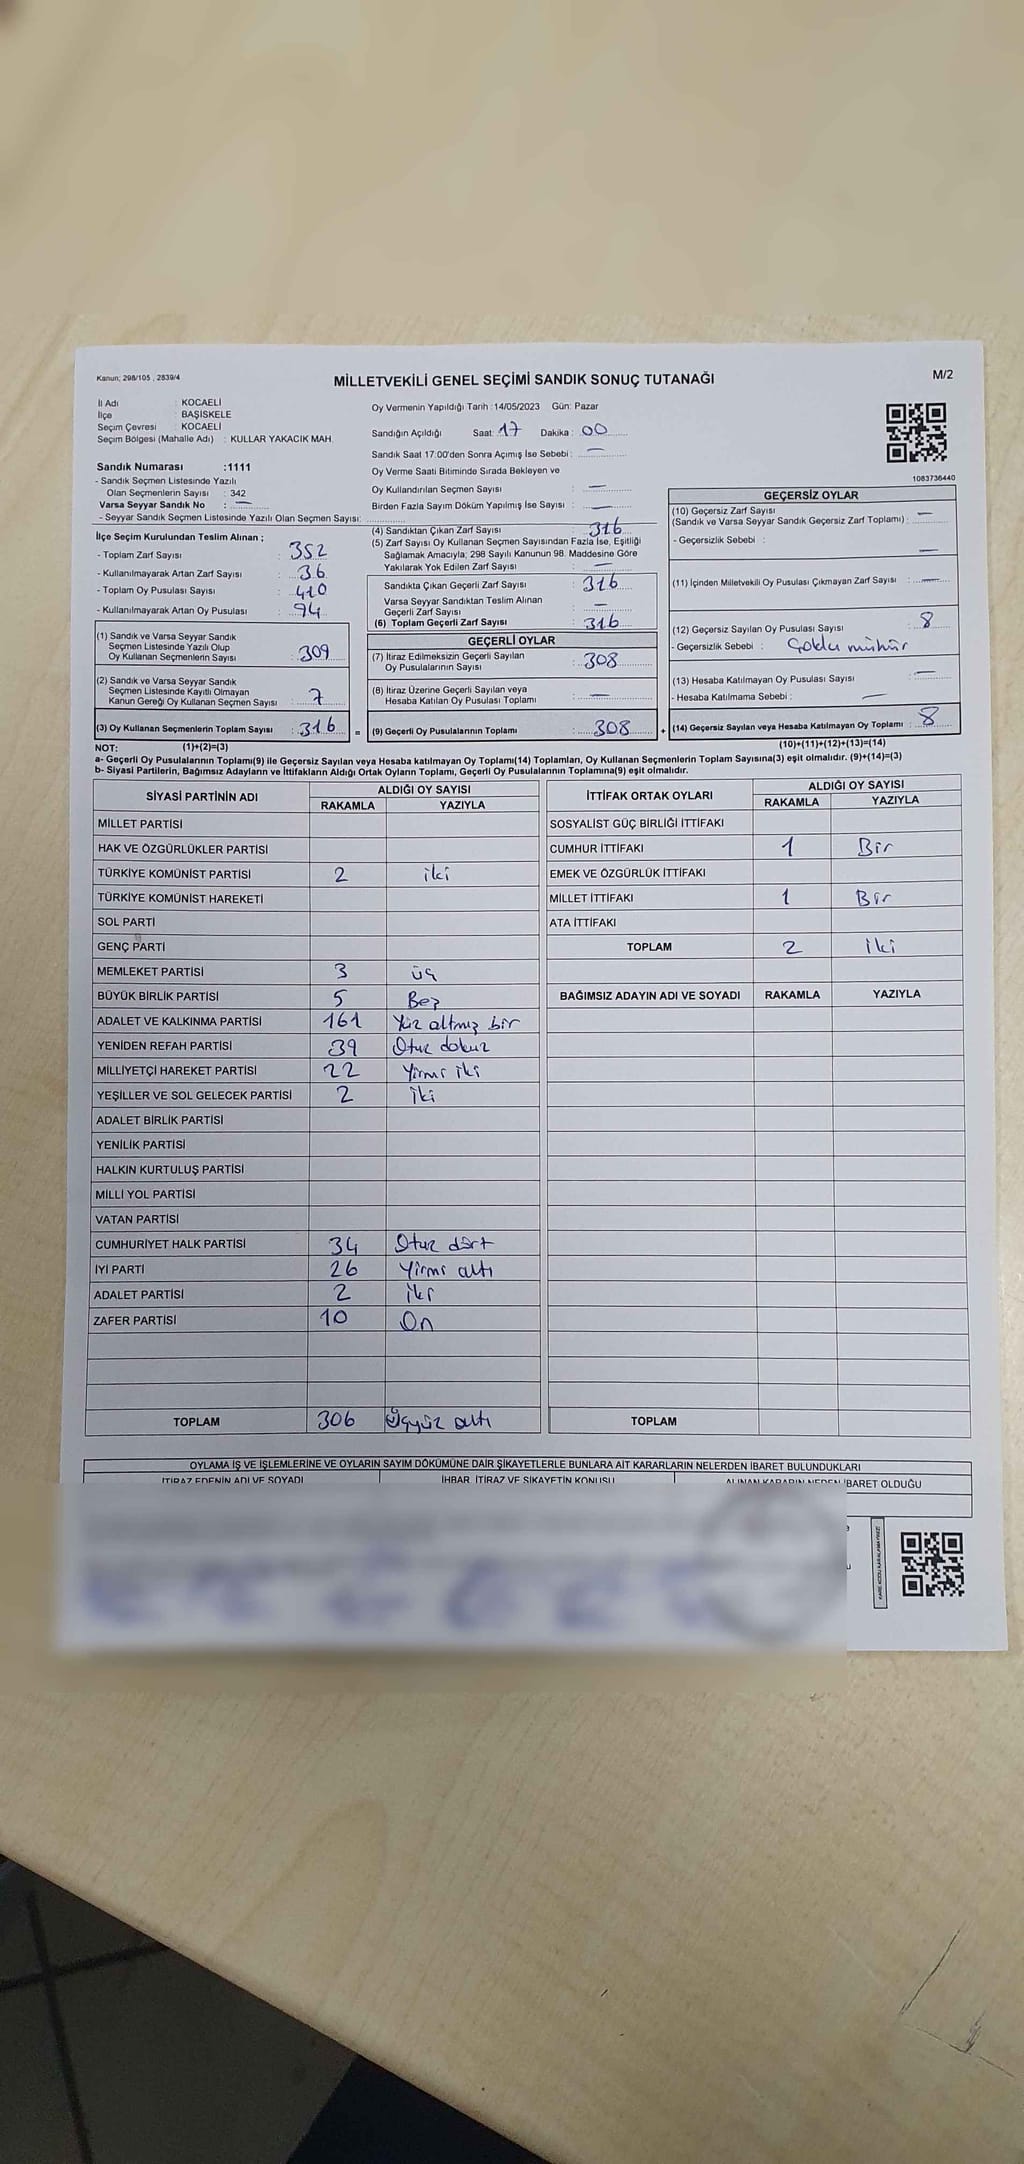 Kanun; 298/105 , 2839/4
MİLLETVEKİLİ GENEL SEÇİMİ SANDIK SONUÇ TUTANAĞI
M/2
İl Adı : KOCAELİ
İlçe : BAŞİSKELE
Seçim Çevresi : KOCAELİ
Seçim Bölgesi (Mahalle Adı) : KULLAR YAKACIK MAH.
Sandık Numarası :1111
- Sandık Seçmen Listesinde Yazılı
Olan Seçmenlerin Sayısı : 342
Varsa Seyyar Sandık No : —
- Seyyar Sandık Seçmen Listesinde Yazılı Olan Seçmen Sayısı:
Oy Vermenin Yapıldığı Tarih :14/05/2023 Gün: Pazar
Sandığın Açıldığı Saat: 17 Dakika : 00
Sandık Saat 17:00'den Sonra Açımış İse Sebebi : —
Oy Verme Saati Bitiminde Sırada Bekleyen ve
Oy Kullandırılan Seçmen Sayısı : —
Birden Fazla Sayım Döküm Yapılmış İse Sayısı : —
1083736440
İlçe Seçim Kurulundan Teslim Alınan ;
- Toplam Zarf Sayısı : 352
- Kullanılmayarak Artan Zarf Sayısı : 36
- Toplam Oy Pusulası Sayısı : 410
- Kullanılmayarak Artan Oy Pusulası : 94
(1) Sandık ve Varsa Seyyar Sandık
Seçmen Listesinde Yazılı Olup
Oy Kullanan Seçmenlerin Sayısı : 309
(2) Sandık ve Varsa Seyyar Sandık
Seçmen Listesinde Kayıtlı Olmayan
Kanun Gereği Oy Kullanan Seçmen Sayısı : 7
(3) Oy Kullanan Seçmenlerin Toplam Sayısı : 316 =
(4) Sandıktan Çıkan Zarf Sayısı : 316
(5) Zarf Sayısı Oy Kullanan Seçmen Sayısından Fazla İse, Eşitliği
Sağlamak Amacıyla; 298 Sayılı Kanunun 98. Maddesine Göre
Yakılarak Yok Edilen Zarf Sayısı : —
Sandıkta Çıkan Geçerli Zarf Sayısı : 316
Varsa Seyyar Sandıktan Teslim Alınan
Geçerli Zarf Sayısı : —
(6) Toplam Geçerli Zarf Sayısı : 316
GEÇERLİ OYLAR
(7) İtiraz Edilmeksizin Geçerli Sayılan
Oy Pusulalarının Sayısı : 308
(8) İtiraz Üzerine Geçerli Sayılan veya
Hesaba Katılan Oy Pusulası Toplamı : —
(9) Geçerli Oy Pusulalarının Toplamı : 308 +
GEÇERSİZ OYLAR
(10) Geçersiz Zarf Sayısı
(Sandık ve Varsa Seyyar Sandık Geçersiz Zarf Toplamı) : —
- Geçersizlik Sebebi : —
(11) İçinden Milletvekili Oy Pusulası Çıkmayan Zarf Sayısı : —
(12) Geçersiz Sayılan Oy Pusulası Sayısı : 8
- Geçersizlik Sebebi : Çoklu mühür
(13) Hesaba Katılmayan Oy Pusulası Sayısı : —
- Hesaba Katılmama Sebebi : —
(14) Geçersiz Sayılan veya Hesaba Katılmayan Oy Toplamı : 8
NOT: (1)+(2)=(3) (10)+(11)+(12)+(13)=(14)
a- Geçerli Oy Pusulalarının Toplamı(9) ile Geçersiz Sayılan veya Hesaba katılmayan Oy Toplamı(14) Toplamları, Oy Kullanan Seçmenlerin Toplam Sayısına(3) eşit olmalıdır. (9)+(14)=(3)
b- Siyasi Partilerin, Bağımsız Adayların ve İttifakların Aldığı Ortak Oyların Toplamı, Geçerli Oy Pusulalarının Toplamına(9) eşit olmalıdır.
SİYASİ PARTİNİN ADI ALDIĞI OY SAYISI
RAKAMLA YAZIYLA
MİLLET PARTİSİ
HAK VE ÖZGÜRLÜKLER PARTİSİ
TÜRKİYE KOMÜNİST PARTİSİ 2 iki
TÜRKİYE KOMÜNİST HAREKETİ
SOL PARTİ
GENÇ PARTİ
MEMLEKET PARTİSİ 3 üç
BÜYÜK BİRLİK PARTİSİ 5 Beş
ADALET VE KALKINMA PARTİSİ 161 Yüz altmış bir
YENİDEN REFAH PARTİSİ 39 Otuz dokuz
MİLLİYETÇİ HAREKET PARTİSİ 22 Yirmi iki
YEŞİLLER VE SOL GELECEK PARTİSİ 2 İki
ADALET BİRLİK PARTİSİ
YENİLİK PARTİSİ
HALKIN KURTULUŞ PARTİSİ
MİLLİ YOL PARTİSİ
VATAN PARTİSİ
CUMHURİYET HALK PARTİSİ 34 Otuz dört
İYİ PARTİ 26 Yirmi altı
ADALET PARTİSİ 2 İki
ZAFER PARTİSİ 10 On
TOPLAM 306 Üçyüz altı
İTTİFAK ORTAK OYLARI ALDIĞI OY SAYISI
RAKAMLA YAZIYLA
SOSYALİST GÜÇ BİRLİĞİ İTTİFAKI
CUMHUR İTTİFAKI 1 Bir
EMEK VE ÖZGÜRLÜK İTTİFAKI
MİLLET İTTİFAKI 1 Bir
ATA İTTİFAKI
TOPLAM 2 İki
BAĞIMSIZ ADAYIN ADI VE SOYADI RAKAMLA YAZIYLA
TOPLAM
OYLAMA İŞ VE İŞLEMLERİNE VE OYLARIN SAYIM DÖKÜMÜNE DAİR ŞİKAYETLERLE BUNLARA AİT KARARLARIN NELERDEN İBARET BULUNDUKLARI
İTİRAZ EDENİN ADI VE SOYADI İHBAR, İTİRAZ VE ŞİKAYETİN KONUSU ALINAN KARARIN NEDEN İBARET OLDUĞU